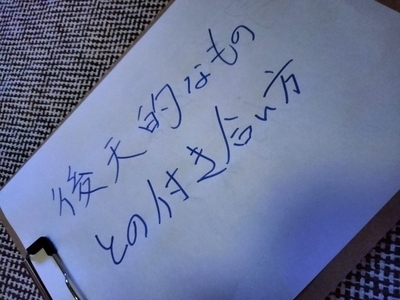 後天的なもの
との付き合い方